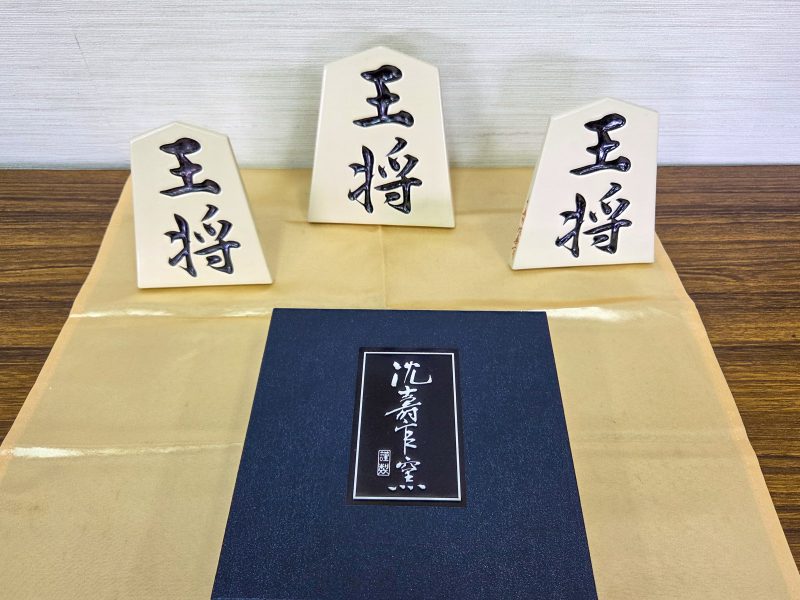 王将
王将
王将
沈壽官窯
謹製